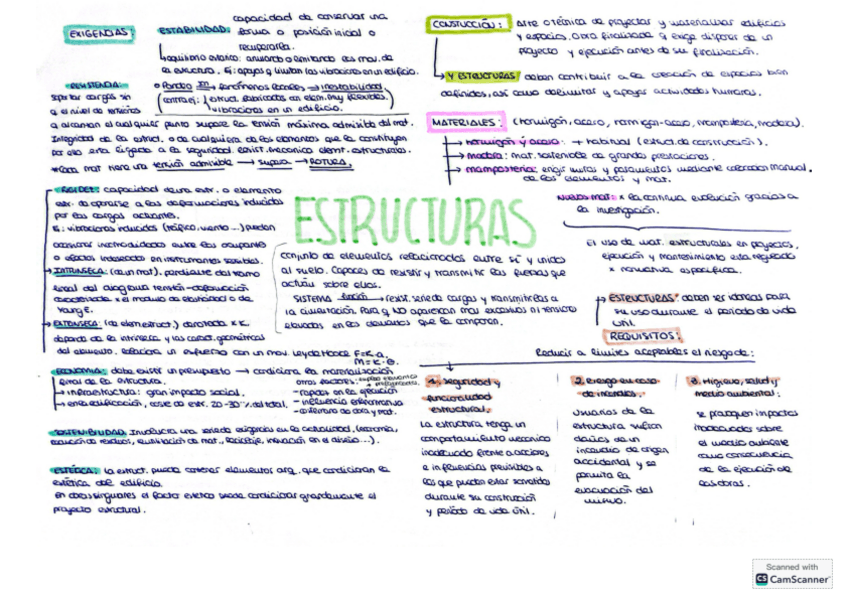 EXIGENCIAS:
ESTABILIDAD: capacidad de conservar una
forma o posición inicial o
recuperarla.
equilibrio estático: anulando o limitando los mov. de
la estructura. Ej: apoyos q limitan las vibraciones en un edificio.
Pandeo fenómenos locales → inestabilidad
(contraej: (estruct. fabricadas con elem. muy flexibles,
vibraciones en un edificio.
RESISTENCIA:
soportar cargas sin
q el nivel de tensiones
q alcanzan el cualquier punto supere la tensión máxima admisible del mat.
Integridad de la estruct. o de cualquiera de los elementos que la constituyen
por ello está ligada a la seguridad.
*Cada mat tiene una tensión admisible → supera → ROTURA.
RIGIDEZ: capacidad de una estr. o elemento
estr. de oponerse a las deformaciones inducidas
por las cargas actuantes.
Ej: vibraciones inducidas (tráfico, viento ...) pueden
ocasionar incomodidades entre los ocupantes
o efectos indeseados en instrumentos sensibles.
INTRÍNSECA: (de un mat), pendiente del tramo
lineal del diagrama tensión-deformación
caracterizada x el módulo de elasticidad o de
Young E.
EXTRÍNSECA: (de elem. estruct.) denotada x K,
depende de la intrínseca y las caract. geométricas
del elemento. Relaciona un esfuerzo con un mov. Ley de Hooke F=K·a.
M=K·θ.
ECONOMÍA: debe existir un presupuesto → condiciona la materialización
final de la estructura.
→ infraestructura: gran impacto social.
→ en edificación, coste de estr. 20-30% del total.
otros factores:
- rapidez en la ejecución
- influencia
- cobertura de obra y mat.
SOSTENIBILIDAD: Involucra una serie de exigencias en la actualidad (economía,
reducción de residuos, reutilización de mat., reciclaje, innovación en el diseño...).
ESTÉTICA: La estruct. puede contener elementos arq. que condicionan la
estética del edificio.
En obras singulares el factor estético puede condicionar grandemente el
proyecto estructural.
ESTRUCTURAS
conjunto de elementos relacionados entre sí y unidos
al suelo. Capaces de resistir y transmitir las fuerzas que
actúan sobre ellos.
SISTEMA función → resist. serie de cargas y transmitirlas a
la cimentación. Para q NO aparezcan mov. excesivos ni tensiones
elevadas en los elementos que la componen.
CONSTUCCIÓN: Arte o técnica de proyectar y materializar edificios
y espacios. Obra finalizada q exige disponer de un
proyecto y ejecución antes de su finalización.
Y ESTRUCTURAS deben contribuir a la creación de espacios bien
definidos, así como delimitar y apoyar actividades humanas.
MATERIALES: (hormigón, acero, hormigón-acero, mampostería, madera).
→ hormigón y acero: + habitual (estruct. de construcción).
→ madera: mat. sostenible de grandes prestaciones.
→ mampostería: erigir muros y paramentos mediante colocación manual
de los elementos y mat.
Nuevos mat: x la continua evolución gracias a
la investigación.
El uso de mat. estructurales en proyectos,
ejecución y mantenimiento está regulado
x normativa específica.
→ ESTRUCTURAS: deben ser idóneas para
su uso durante el período de vida
útil.
REQUISITOS:
Reducir a límites aceptables el riesgo de:
1. Seguridad y
funcionalidad
estructural.
La estructura tenga un
comportamiento mecánico
inadecuado frente a acciones
e influencias previsibles a
las que pueden estar sometidas
durante su construcción
y período de vida útil.
2. Riesgo en caso
de incendio.
Usuarios de la
estructura sufran
daños de un
incendio de origen
accidental y se
permita la
evacuación del
mismo.
3. Higiene, salud y
medio ambiente:
se produzcan impactos
inadecuados sobre
el medio ambiente
como consecuencia
de la ejecución de
las obras.
Scanned with
CS CamScanner